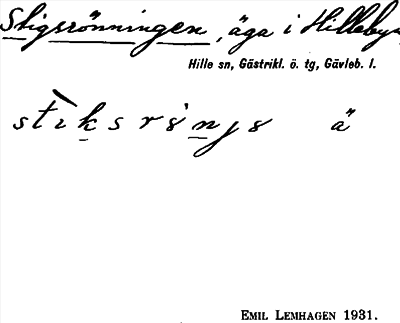 Stigsrönningen, äga i Hilleby
Hille sn, Gästrikl. ö. tg, Gävleb. l.
ä
EMIL LEMHAGEN 1931.